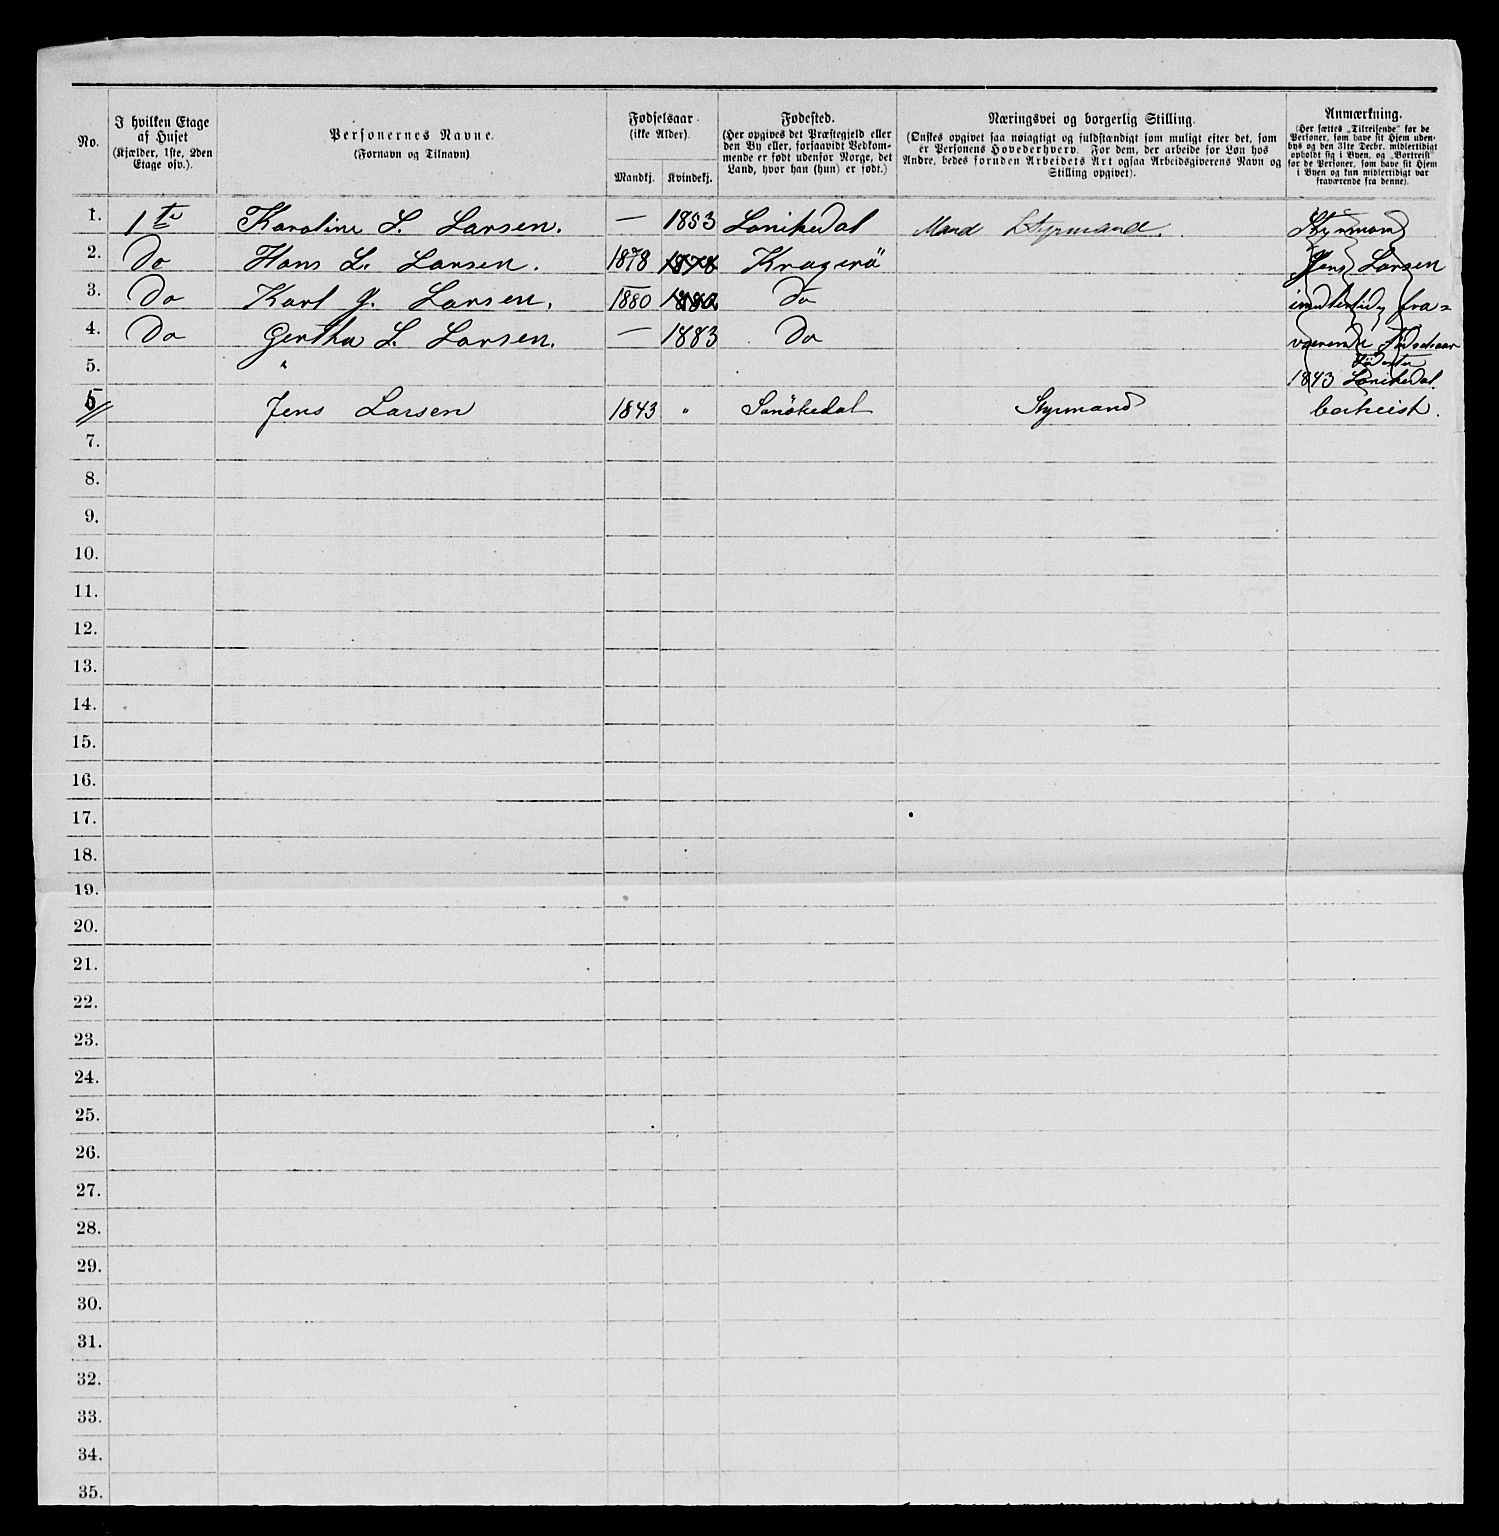 No.
I hvilken Etage af Huset (Kjælder, 1ste, 2den Etage osv.).
Personernes Navne. (Fornavn og Tilnavn).
Fødselsaar. (ikke Alder). Mandkj. Kvindekj.
Fødested. (Her opgives det Præstegjeld eller den By eller, forsaavidt Vedkommende er født udenfor Norge, det Land, hvor han (hun) er født.)
Næringsvei og borgerlig Stilling. (Ønskes opgivet saa nøiagtigt og fuldstændigt som muligt efter det, som er Personens Hovederhverv. For dem, der arbeide for Løn hos Andre, bedes foruden Arbeidets Art ogsaa Arbeidsgiverens Navn og Stilling opgivet).
Anmærkning. (Her sættes „Tilreisende“ for de Personer, som have sit Hjem udenbys og den 31te Decbr. midlertidigt opholdt sig i Byen, og „Bortreist“ for de Personer, som have sit Hjem i Byen og kun midlertidigt var fraværende fra denne).
1. 1te Karoline L. Larsen. — 1853 Sanikedal Mand Styrmand. Styrmand
2. Do Hans L. Larsen. 1878 1878 Kragerö Jens Larsen
3. Do Karl J. Larsen. 1880 1880 Do imidlertidig fra=
4. Do Gertha L. Larsen. — 1883 Do værende Födselsaar
5. " Födested
1843 Sanikedal
5 Jens Larsen 1843 " Sanökedal Styrmand bortreist.
7.
8.
9.
10.
11.
12.
13.
14.
15.
16.
17.
18.
19.
20.
21.
22.
23.
24.
25.
26.
27.
28.
29.
30.
31.
32.
33.
34.
35.